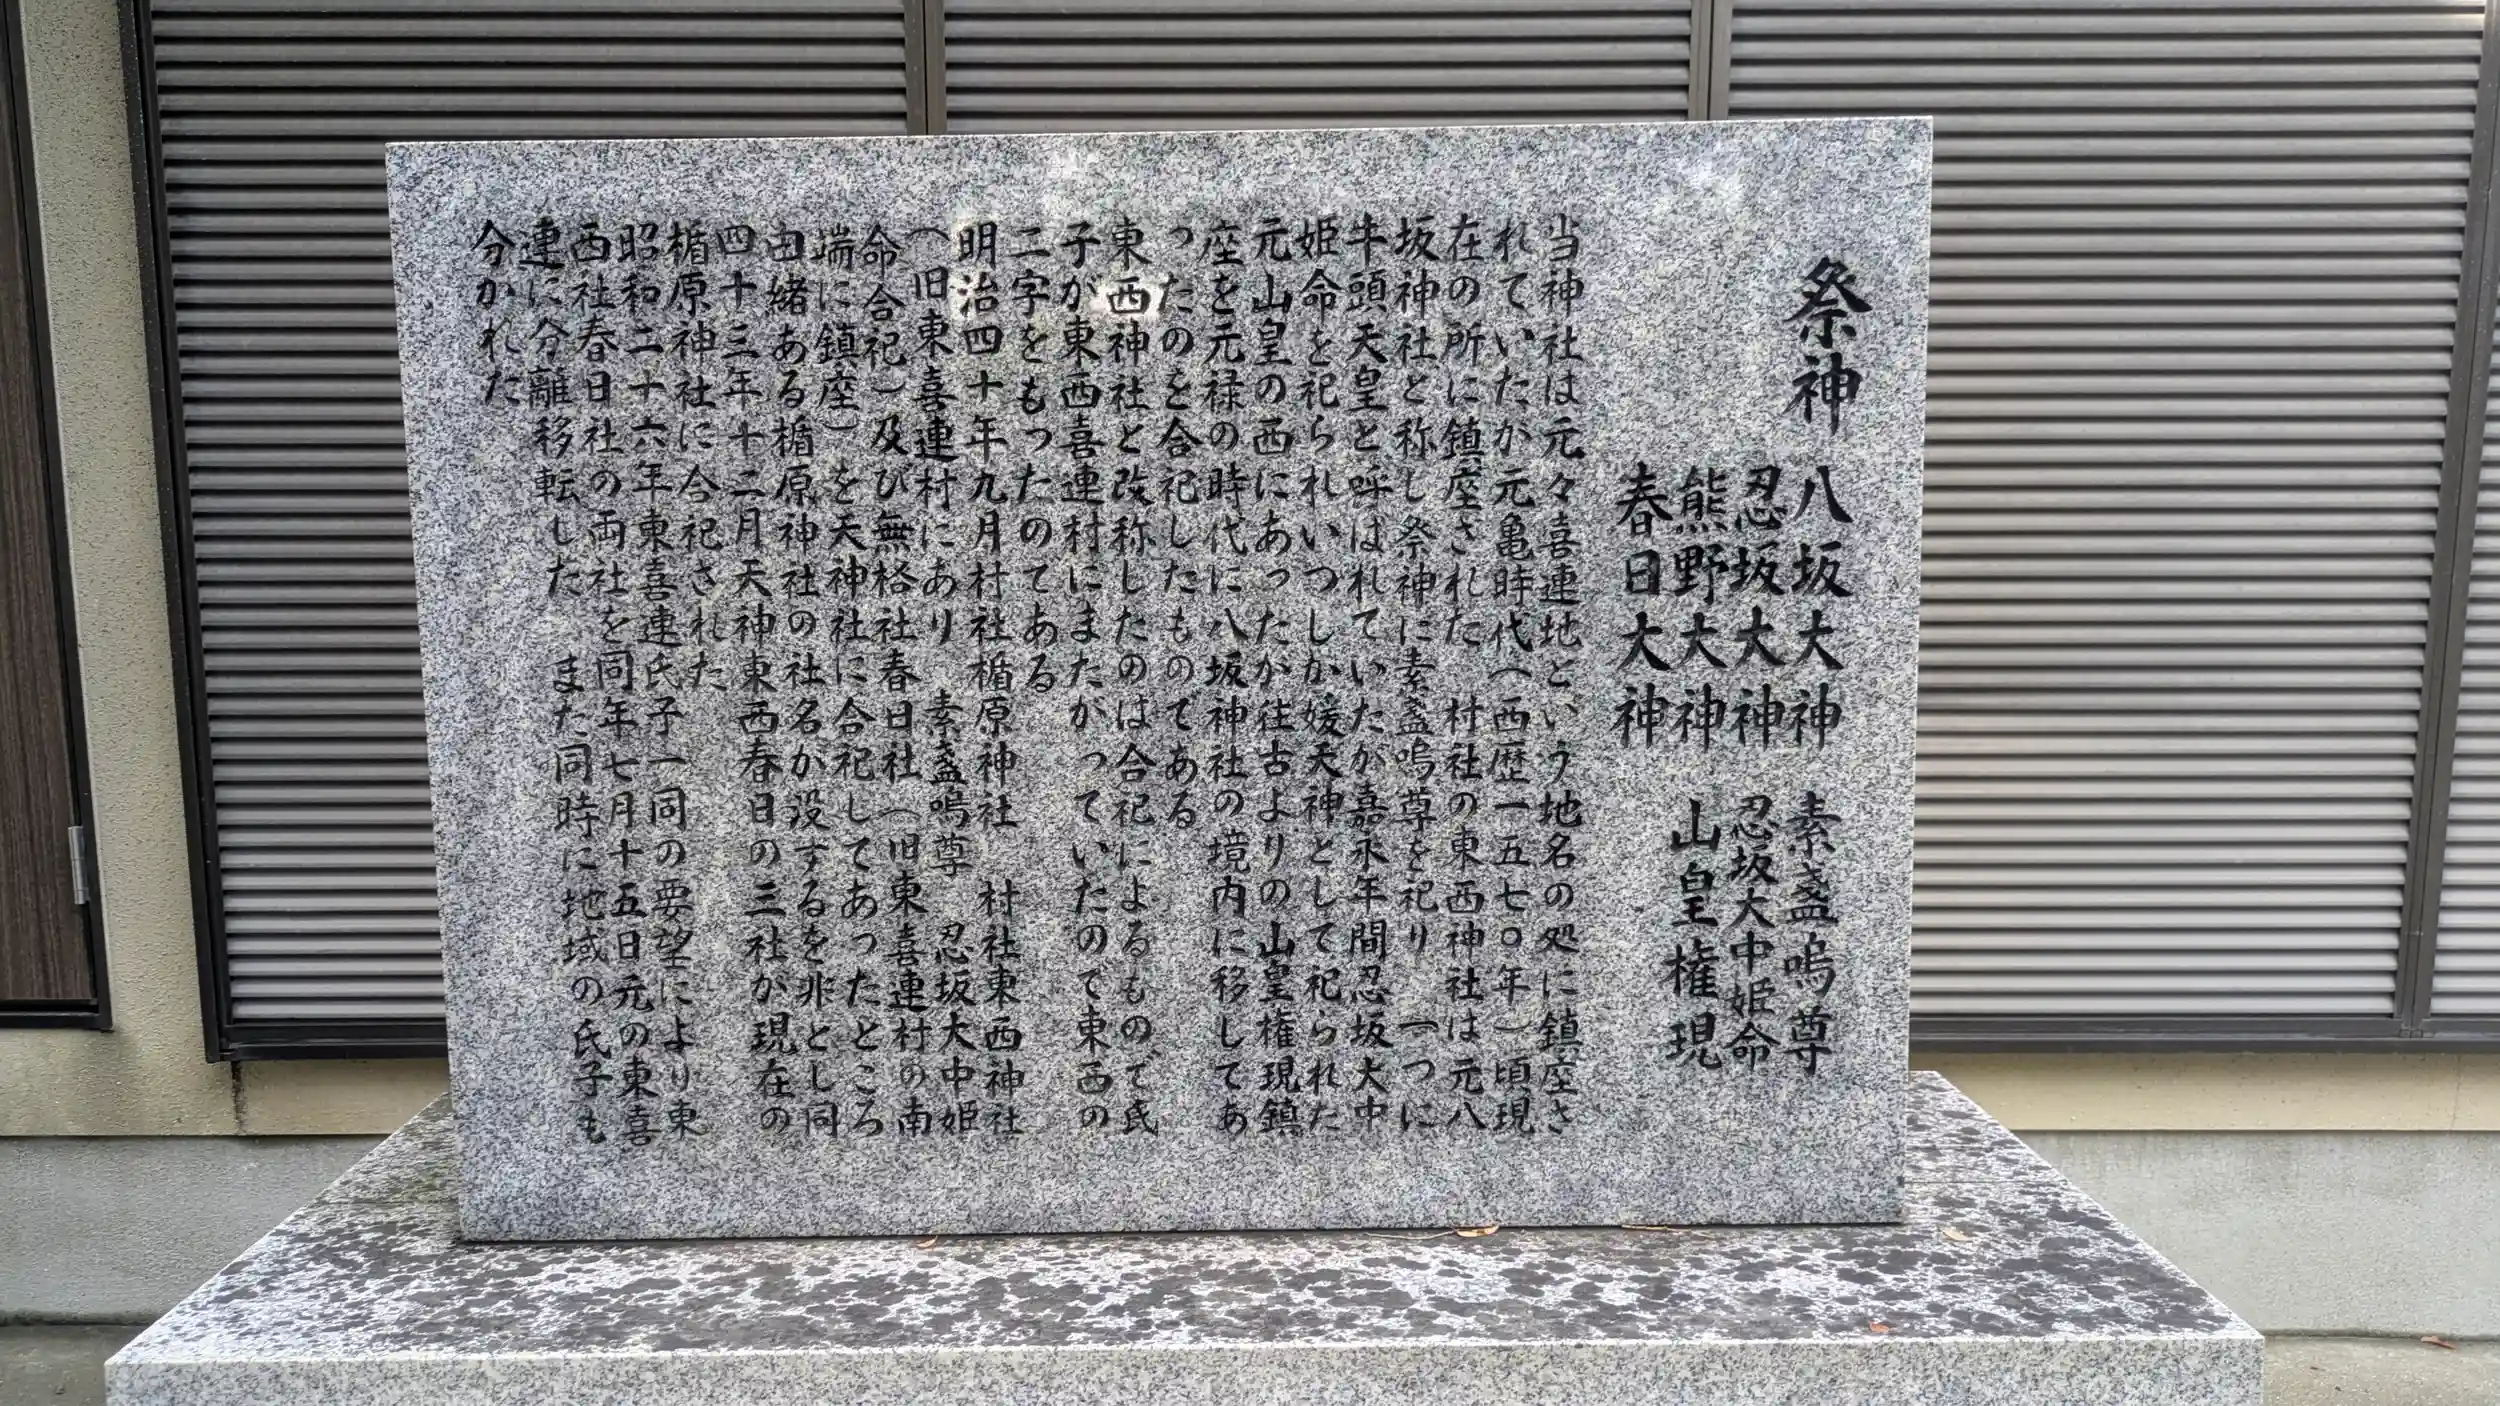 祭神 八坂大神 素盞嗚尊
忍坂大神 忍坂大中姫命
熊野大神 山皇権現
春日大神
当神社は元々喜連地という地名の処に鎮座さ
れていたか元亀時代(西歴一五七〇年)頃現
在の所に鎮座された 村社の東西神社は元八
坂神社と称し祭神に素盞嗚尊を祀り一つに
牛頭天皇と呼ばれていたが嘉永年間忍坂大中
姫命を祀られいつしか媛天神として祀られた
元山皇の西にあったか往古よりの山皇権現鎮
座を元禄の時代に八坂神社の境内に移してあ
ったのを合祀したものてある
東西神社と改称したのは合祀によるもので氏
子が東西喜連村にまたがっていたので東西の
二字をもったのてある
明治四十年九月村社楯原神社 村社東西神社
(旧東喜連村にあり 素盞嗚尊 忍坂大中姫
命合祀)及び無格社春日社(旧東喜連村の南
端に鎮座)を天神社に合祀してあったところ
由緒ある楯原神社の社名か没するを非とし同
四十三年十二月天神東西春日の三社か現在の
楯原神社に合祀された
昭和二十六年東喜連氏子一同の要望により東
西社春日社の両社を同年七月十五日元の東喜
連に分離移転した また同時に地域の氏子も
分かれた